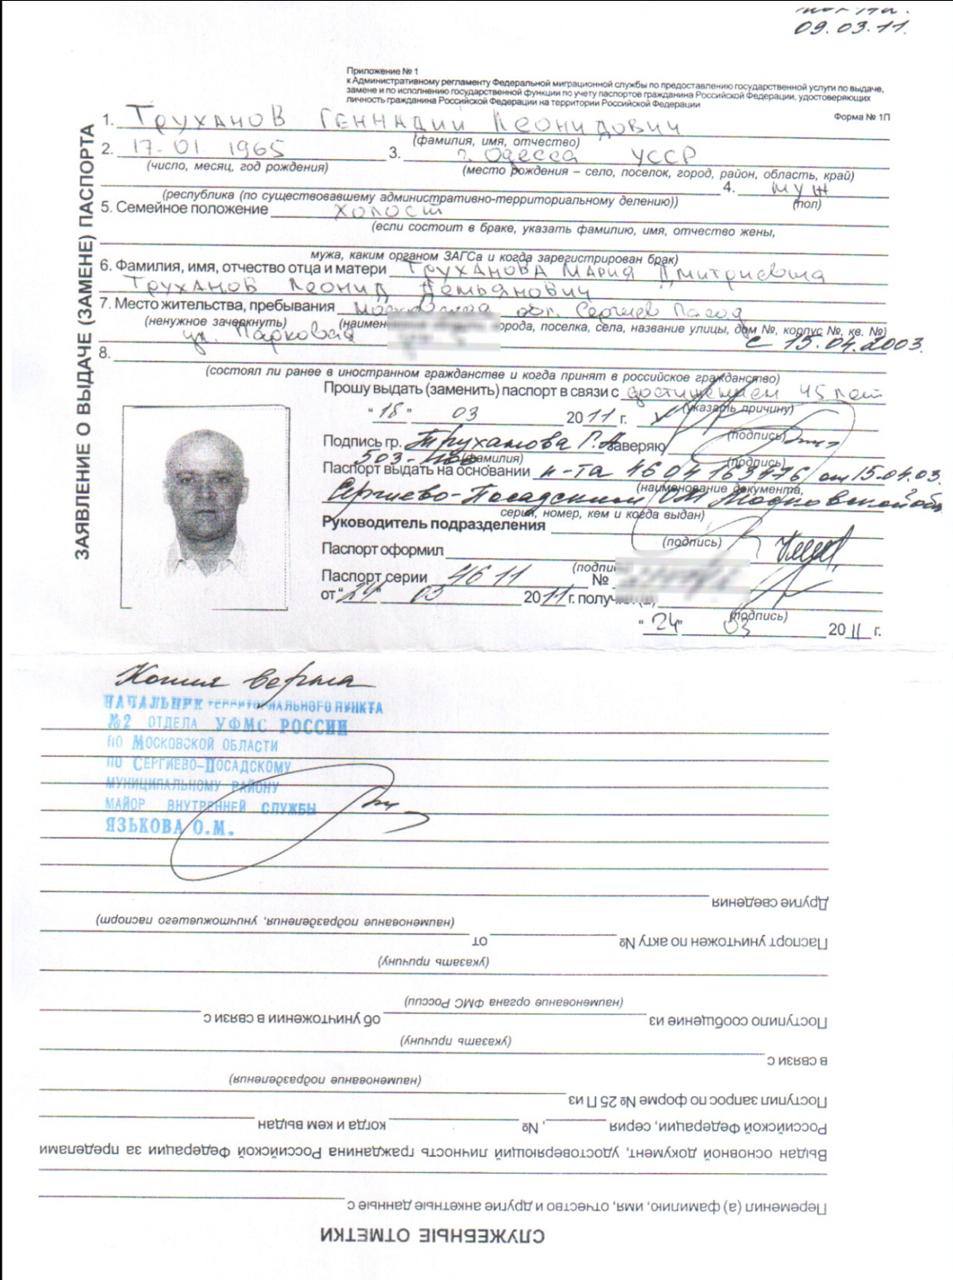 09.03.11.
Приложение № 1
к Административному регламенту Федеральной миграционной службы по предоставлению государственной услуги по выдаче,
замене и по исполнению государственной функции по учету паспортов гражданина Российской Федерации, удостоверяющих
личность гражданина Российской Федерации на территории Российской Федерации
Форма № 1П
ЗАЯВЛЕНИЕ О ВЫДАЧЕ (ЗАМЕНЕ) ПАСПОРТА
1. Труханов Геннадий Леонидович
(фамилия, имя, отчество)
2. 17.01 1965 3. г. Одесса УССР
(число, месяц, год рождения) (место рождения – село, поселок, город, район, область, край)
4. муж
(республика (по существовавшему административно-территориальному делению)) (пол)
5. Семейное положение холост
(если состоит в браке, указать фамилию, имя, отчество жены,
мужа, каким органом ЗАГСа и когда зарегистрирован брак)
6. Фамилия, имя, отчество отца и матери Труханова Мария Дмитриевна
Труханов Леонид Демьянович
7. Место жительства, пребывания московская обл. Сергиев Посад
(ненужное зачеркнуть) города, поселка, села, название улицы, дом №, корпус №, кв. №)
ул. Парковая с 15.04.2003.
8.
(состоял ли ранее в иностранном гражданстве и когда принят в российское гражданство)
Прошу выдать (заменить) паспорт в связи с достижением 45 лет
(указать причину)
"18" 03 2011 г.
(подпись)
Подпись гр. Труханова Г.Л. заверяю
(фамилия) (подпись)
Паспорт выдать на основании п-та 4604 163476 от 15.04.03.
(наименование документа,
Сергиево-Посадским Московской обл
серия, номер, кем и когда выдан)
Руководитель подразделения
(подпись)
Паспорт оформил
Паспорт серии 46 11 №
от "24" 03 2011 г.
(подпись)
"24" 03 2011 г.
Копия верна
НАЧАЛЬНИК ТЕРРИТОРИАЛЬНОГО ПУНКТА
№2 ОТДЕЛА УФМС РОССИИ
ПО МОСКОВСКОЙ ОБЛАСТИ
ПО СЕРГИЕВО-ПОСАДСКОМУ
МУНИЦИПАЛЬНОМУ РАЙОНУ
МАЙОР ВНУТРЕННЕЙ СЛУЖБЫ
ЯЗЬКОВА О.М.
СЛУЖЕБНЫЕ ОТМЕТКИ
Переменил (а) фамилию, имя, отчество и другие анкетные данные с
Выдан основной документ, удостоверяющий личность гражданина Российской Федерации за пределами
Российской Федерации, серия , № когда и кем выдан
Поступил запрос по форме № 25 П из
(наименование подразделения)
в связи с
(указать причину)
Поступило сообщение из об уничтожении в связи с
(наименование органа ФМС России)
(указать причину)
Паспорт уничтожен по акту № от
(наименование подразделения, уничтожившего паспорт)
Другие сведения